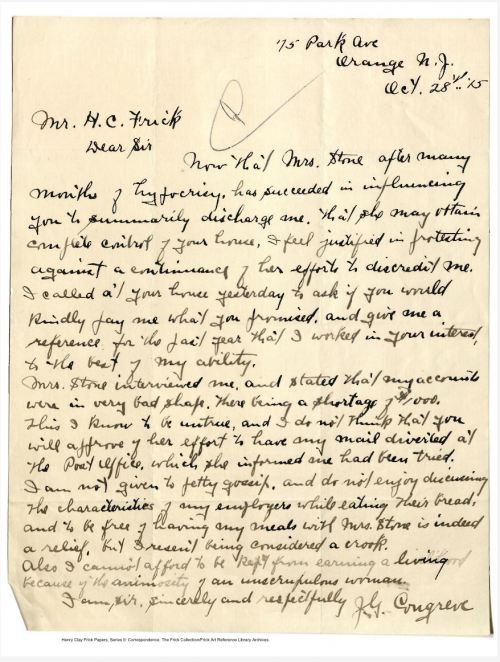 75 Park Ave
Orange N.J.
Oct. 28th '15
Mr. H. C. Frick
Dear Sir
Now that Mrs. Stone after many
months of hypocrisy, has succeeded in influencing
you to summarily discharge me, that she may obtain
complete control of your house, I feel justified in protesting
against a continuance of her efforts to discredit me.
I called at your house yesterday to ask if you would
kindly pay me what you promised, and give me a
reference for the past year that I worked in your interest,
to the best of my ability.
Mrs. Stone interviewed me, and stated that my accounts
were in very bad shape, there being a shortage of $1,000.
This I know to be untrue, and I do not think that you
will approve of her effort to have my mail diverted at
the Post Office, which she informed me had been tried.
I am not given to petty gossip, and do not enjoy discussing
the characteristics of my employers while eating their bread,
and to be free of having my meals with Mrs. Stone is indeed
a relief, but I resent being considered a crook.
Also I cannot afford to be kept from earning a living
because of the animosity of an unscrupulous woman.
I am, Sir, sincerely and respectfully J.G. Congreve
Henry Clay Frick Papers, Series II: Correspondence. The Frick Collection/Frick Art Reference Library Archives.